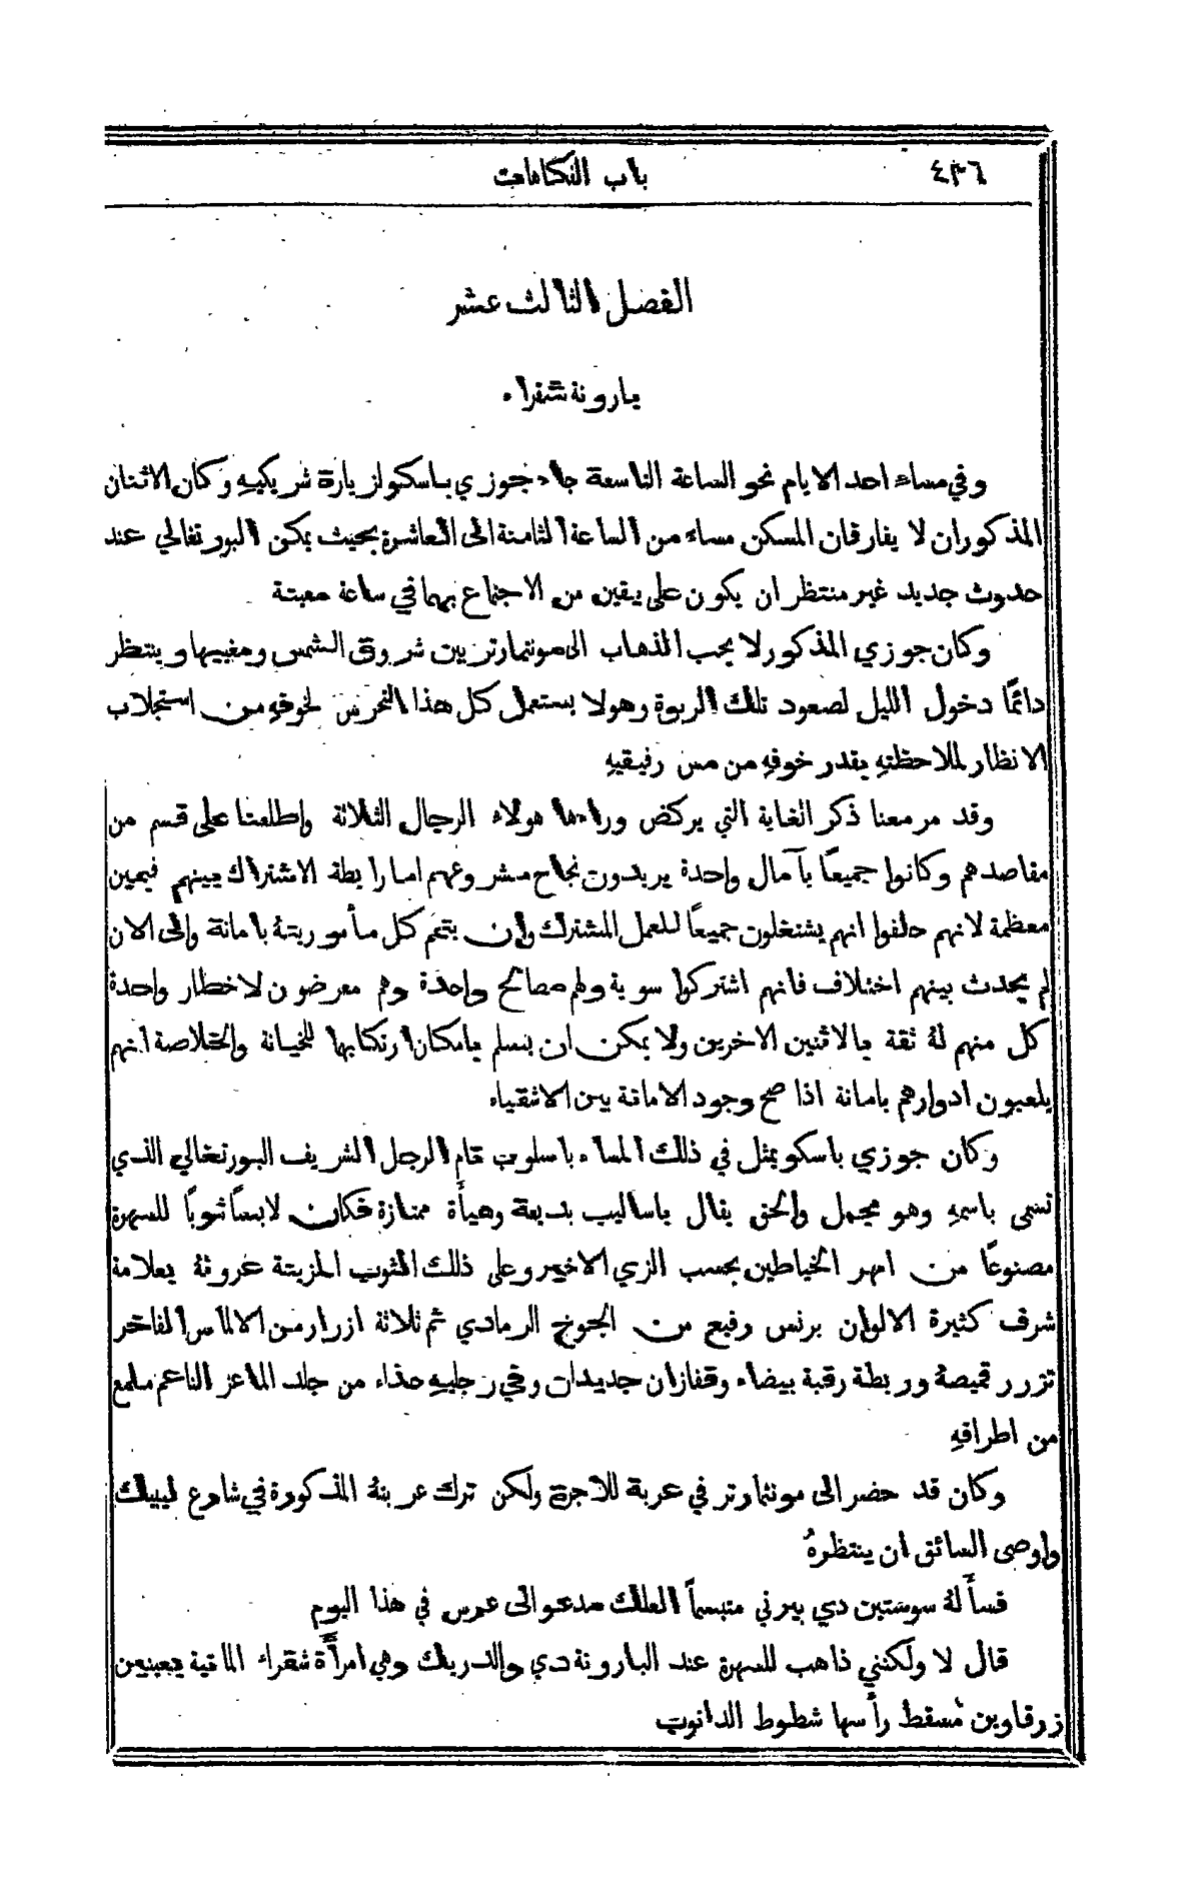 ٤٣٦
باب الفكاهات
الفصل الثالث عشر
بارونة شقراء
وفي مساء احد الايام نحو الساعة التاسعة جاء جوزي باسكو لزيارة شريكيهِ وكان الاثنان
المذكوران لا يفارقان المسكن مساء من الساعة الثامنة الى العاشرة بحيث يمكن البورتغالي عند
حدوث جديد غير منتظر ان يكون على يقين من الاجتماع بهما في ساعة معينة
وكان جوزي المذكور لا يحب الذهاب الى مونتمارتر بين شروق الشمس ومغيبها وينتظر
دائمًا دخول الليل لصعود تلك الربوة وهو لا يستعمل كل هذا التحرس لخوفهِ من استجلاب
الانظار لملاحظتهِ بقدر خوفهِ من مس رفيقيهِ
وقد مر معنا ذكر الغاية التي يركض وراءها هولاء الرجال الثلاثة واطلعنا على قسم من
مقاصدهم وكانوا جميعًا بآمال واحدة يريدون نجاح مشروعهم اما رابطة الاشتراك بينهم فيمين
معظمة لانهم حلفوا انهم يشتغلون جميعًا للعمل المشترك وان يتمم كل مأموريتهُ بامانة والى الان
لم يحدث بينهم اختلاف فانهم اشتركوا سوية ولهم مصالح واحدة وهم معرضون لاخطار واحدة
كل منهم لهُ ثقة بالاثنين الاخرين ولا يمكن ان يسلم بامكان ارتكابها للخيانة والخلاصة انهم
يلعبون ادوارهم بامانة اذا صح وجود الامانة بين الاشقياء
وكان جوزي باسكو يمثل في ذلك المساء باسلوب تام الرجل الشريف البورتغالي الذي
تسمى باسمهِ وهو مجمل والحق يقال باساليب بديعة وهيأة ممتازة فكان لابسًا ثوبًا للسهرة
مصنوعًا من امهر الخياطين بحسب الزي الاخير وعلى ذلك الثوب المزينة عروتهُ بعلامة
شرف كثيرة الالوان برنس رفيع من الجوخ الرمادي ثم ثلاثة ازرار من الالماس الفاخر
تزرر قميصهُ وربطة رقبة بيضاء وقفازان جديدان وفي رجليهِ حذاء من جلد الماعز الناعم ملمع
من اطرافهِ
وكان قد حضر الى مونتمارتر في عربة للاجرة ولكن ترك عربتهُ المذكورة في شارع ليبيك
واوصى السائق ان ينتظرهُ
فسأَلهُ سوستين دي بيرني متبسمًا العلك مدعو الى عرس في هذا اليوم
قال لا ولكنني ذاهب للسهرة عند البارونة دي والدريك وهي امرأَة شقراء المانية بعينين
زرقاوين مسقط رأسها شطوط الدانوب